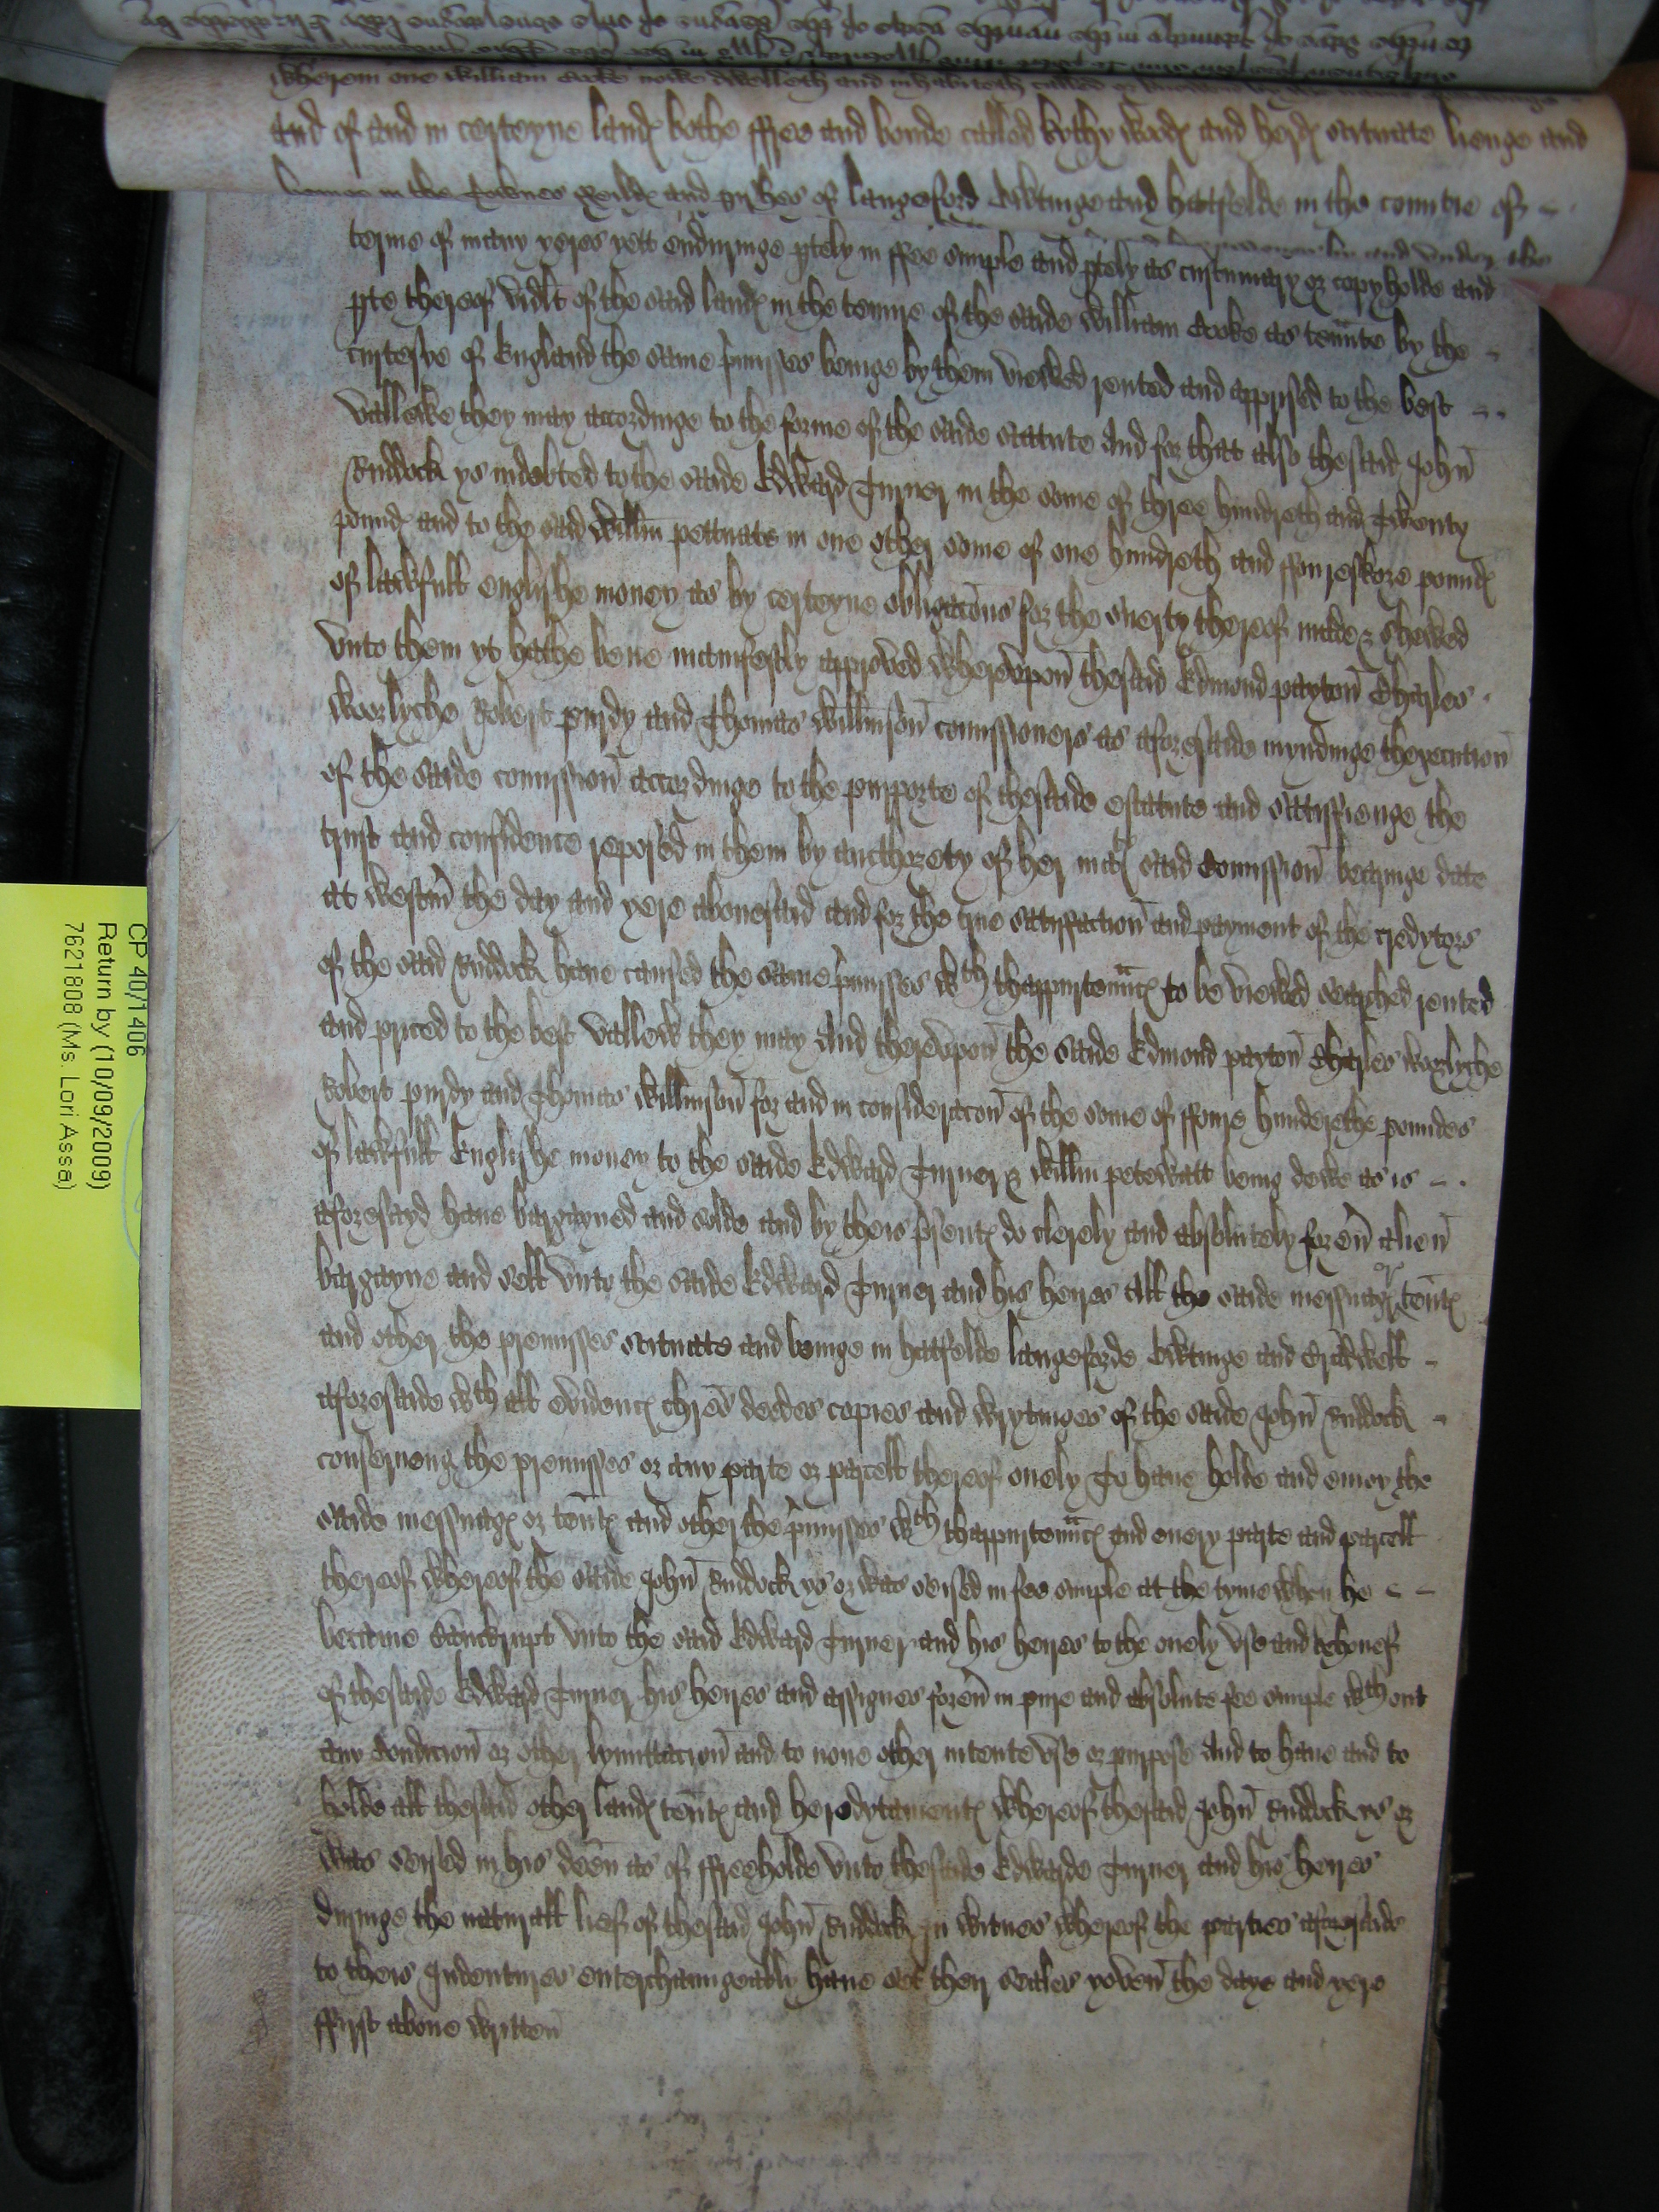 wherein one william Cooke nowe dwelleth and inhabiteth called or knowen by
and of and in certeyne land℮ bothe ffree and bonde called kythy wood℮ and herd℮ scituate lienge and
beinge in the Townes feild℮ and pishes of langeford and hatfelde in the countie of
terme of many yeres yett enduringe ptely in ffee simple and ptely as custumary or copyholde and
pte thereof vidlt of the said land℮ in the tenure of the saide william Cooke as tennte by the
curtesye of England the same pmisses beinge by them viewed rented and apprised to the best
vallewe they may accordinge to the forme of the saide statute And for that also thesaid John
Ruddock ys indebted to the saide Edward Turner in the some of three hundreth and Twenty
pound℮ and to the said Willm pettuate in one other some of one hundreth and ffoureskore pound℮
of lawfull englyshe money as by certeyne obligacons for the suerty thereof made & shewed
vnto them yt hathe bene manifestly approved wherevpon thesaid Edmond payton Charles
woorlyche Robert purdy and Thomas Willmson comissioners as aforesaide myndinge thexecution
of the saide comission accordinge to the purporte of thesaide estatute and sattisfienge the
trust and confidence reposed in them by aucthorety of her mat℮ said Comission bearinge date
at westm the day and yere abouesaid and for the true satisfaction and payment of the credytors
of the said Ruddock haue caused the same pmisses wth thappurtennc℮ to be viewed searched rented
and priced to the best vallew they may And therevpon the saide Edmond payton Charles worlyche
Robert purdy and Thomas Willmson for and in consideracon of the some of ffoure hunderethe poundes
of lawfull Englyshe money to the saide Edward Turner & Willm petewatt being dewe as is
aforesayd haue bargayned and solde and by theis psent℮ do clerely and absolutely foreu alien
bargayne and sell vnto the saide Edward Turner and his heires all the saide messuag℮ or tent℮
and other the premisses scituate and beinge in hatfelde langeforde and
aforesaide wth all evidenc℮ chres deedes copies and wrytinges of the saide John Ruddock
conserneng the premisses or any parte or parcell thereof onely To haue holde and enioy the
saide messuag℮ or tent℮ and other the pmisses wth thappurtennc℮ and euery parte and parcell
thereof whereof the saide John Ruddock ys or was seised in fee simple at the tyme when he
became banckrupt vnto the said Edward Turner and his heires to the onely vse and behouef
of thesaide Edward Turner his heires and assignes foreu in pure and absolute fee simple wthout
any Condicion or other lymittacion and to none other intente vse or purpose And to haue and to
holde all thesaid other land℮ tent℮ and heredytament℮ whereof thesaid John Ruddock ys or
was seised in his deen as of ffreeholde vnto thesaide Edwarde Turner and his heires
duringe the naturall lief of thesaid John Ruddock In witnes whereof the parties aforesaide
to theis Indentures enterchaungeably haue set their seales yoven the daye and yere
ffirst aboue written
CP 40/1406
Return by (10/09/2009)
7621808 (Ms. Lori Assa)